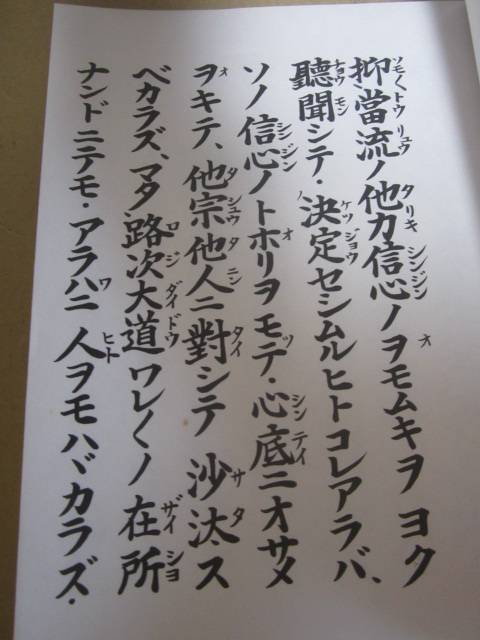 抑當流ノ他力信心ノヲモムキヲ ヨク
聽聞シテ・決定セシムルヒトコレアラバ、
ソノ信心ノトホリヲモテ・心底ニオサメ
ヲキテ、他宗他人ニ對シテ 沙汰ス
ベカラズ、マタ路次大道ワレ〱ノ在所
ナンドニテモ・アラハニ 人ヲモハヾカラズ・